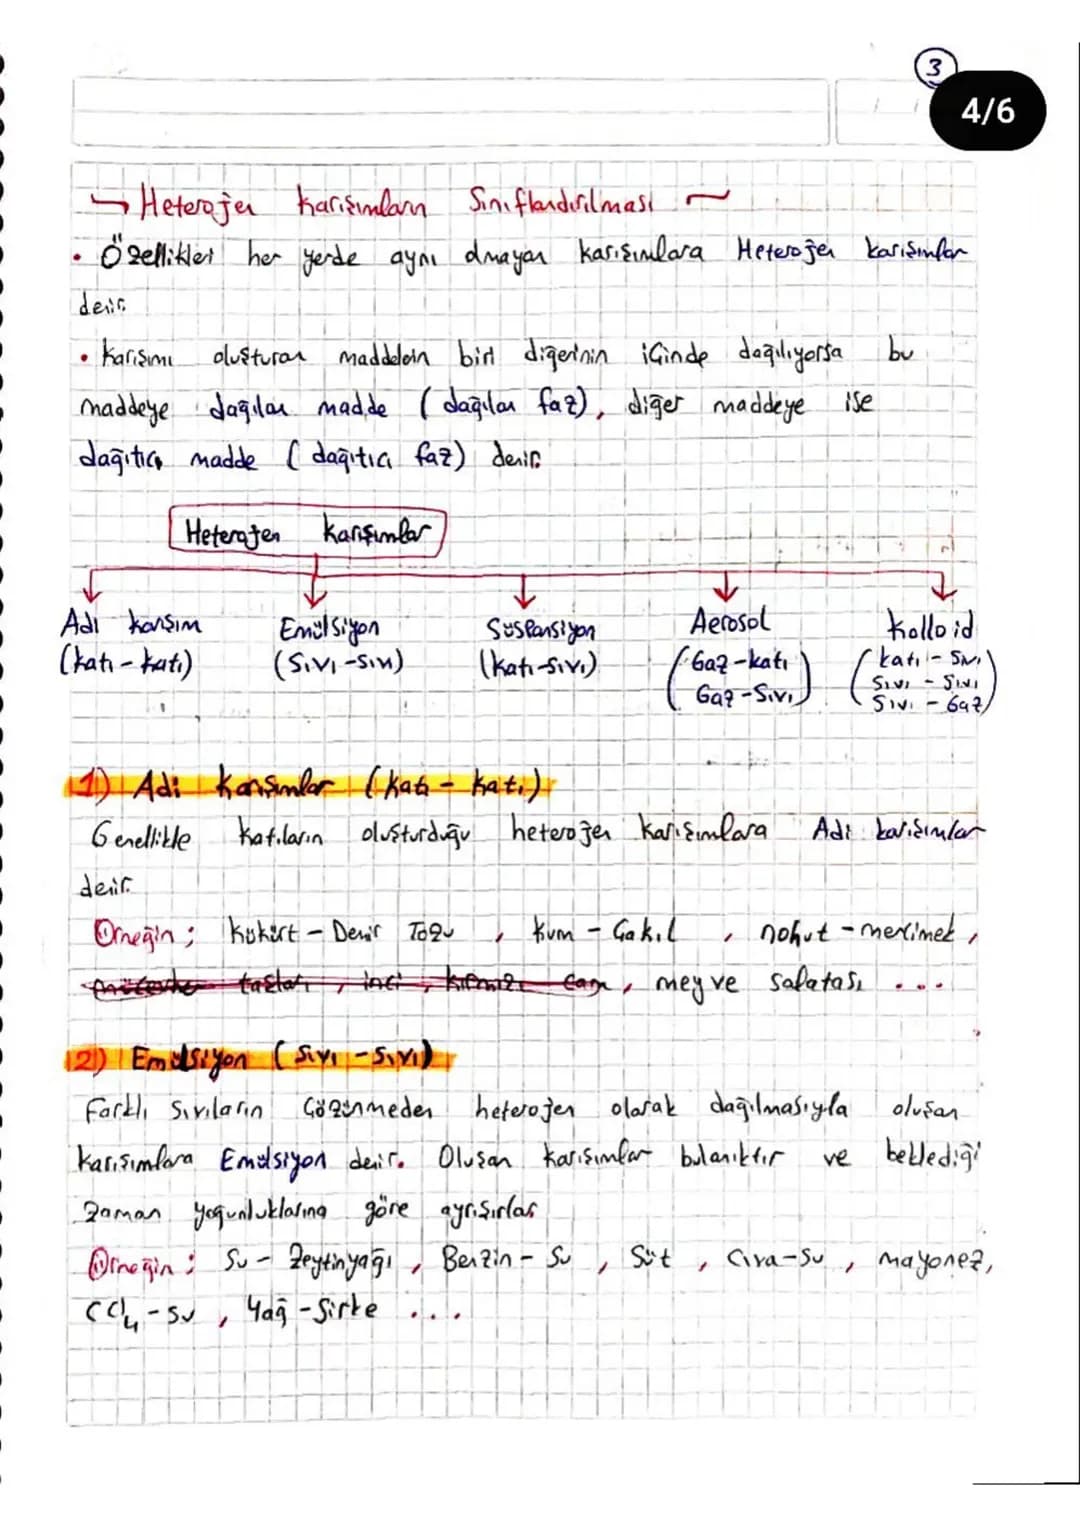 3
4/6
→ Heterojen Karışımların Sınıflandırılması
• Özellikleri her yerde aynı olmayan karışımlara Heterojen karışımlar
denir.
• Karışımı oluşturan maddelerin biri diğerinin içinde dağılıyorsa bu
maddeye dağılan madde (dağılan faz), diğer maddeye ise
dağıtıcı madde (dağıtıcı faz) denir.
Heterojen Karışımlar
Adi karışım Emülsiyon Süspansiyon Aerosol Kolloid
(katı - katı) (Sıvı - Sıvı) (Katı-Sıvı) (Gaz-katı (katı - Sıvı
Gaz-Sıvı) Sıvı - Sıvı
Sıvı - Gaz)
1) Adi Karışımlar (Katı - katı)
Genellikle katıların oluşturduğu heterojen karışımlara Adi karışımlar
denir.
Örneğin; Kükürt - Demir Tozu, Kum - Çakıl, nohut - mercimek,
taşları, inci, kırmızı cam, meyve salatası ...
2) Emülsiyon (Sıvı - Sıvı)
Farklı Sıvıların Çözünmeden heterojen olarak dağılmasıyla oluşan
karışımlara Emülsiyon denir. Oluşan karışımlar bulanıktır ve beklediği
zaman yoğunluklarına göre ayrışırlar
Örneğin; Su - Zeytinyağı, Benzin - Su, Süt, Cıva-Su, mayonez,
CCl₄ - Su, Yağ - Sirke ....